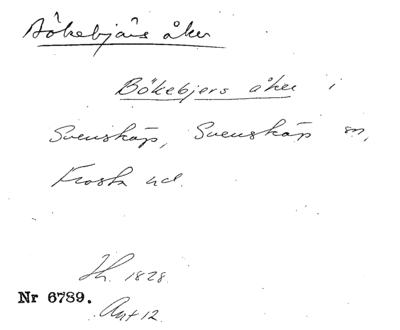 Bökebjärs åker
Bökebjers åker i
Svenskåp, Svenskåp sn,
Frosta hd.
Jh. 1828
Nr 6789.
Akt 12